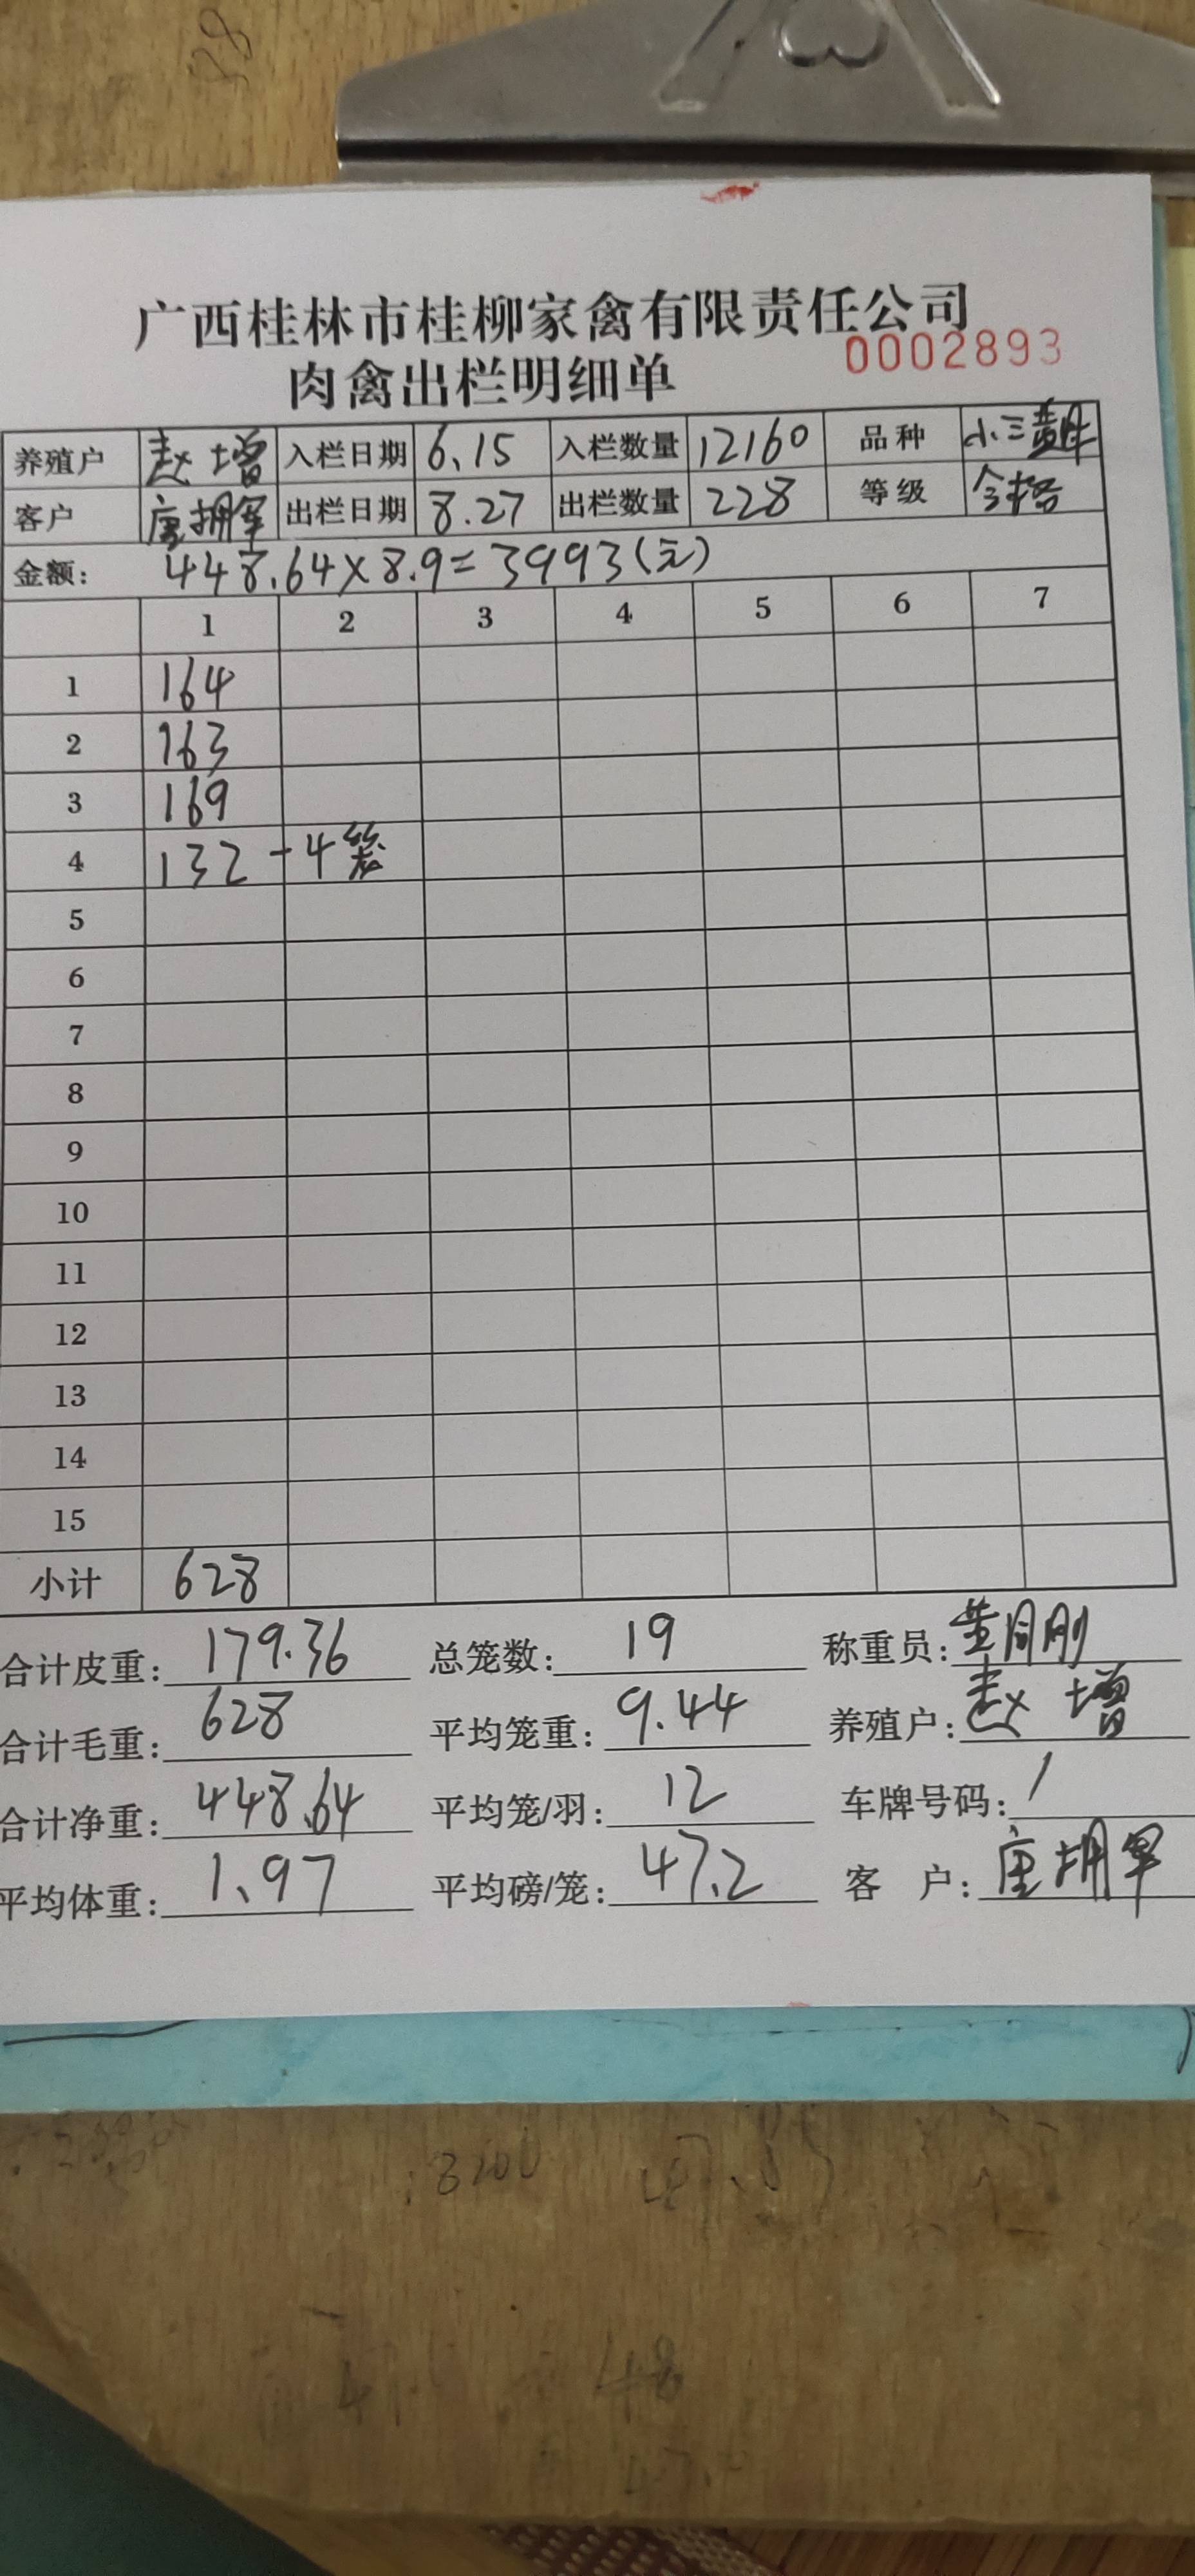 广西桂林市桂柳家禽有限责任公司
肉禽出栏明细单 0002893
养殖户 赵增 入栏日期 6.15 入栏数量 12160 品种 小三黄
客户 唐拥军 出栏日期 8.27 出栏数量 228 等级 合格
金额: 448.64×8.9=3993(元)
1 2 3 4 5 6 7
1 164
2 163
3 169
4 132 - 4笼
5
6
7
8
9
10
11
12
13
14
15
小计 628
合计皮重: 179.36 总笼数: 19 称重员:
合计毛重: 628 平均笼重: 9.44 养殖户: 赵增
合计净重: 448.64 平均笼/羽: 12 车牌号码: /
平均体重: 1.97 平均磅/笼: 47.2 客 户: 唐拥军
48